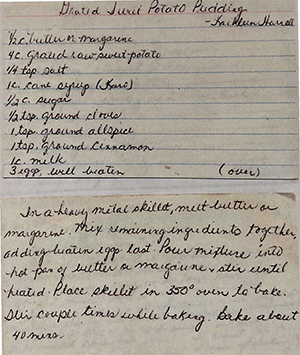 Grated Sweet Potato Pudding
- Kathleen Harrell
1/2 c. butter or margarine
4c. Grated raw sweet potato
1/4 tsp. salt
1c. cane syrup (Karo)
1/2 c. sugar
1/2 tsp. ground cloves
1 tsp. ground allspice
1 tsp. ground cinnamon
1c. milk
3 eggs, well beaten (over)
In a heavy metal skillet, melt butter or
margarine. Mix remaining ingredients together,
adding beaten eggs last. Pour mixture into
hot pan of butter or margarine & stir until
heated. Place skillet in 350° oven to bake.
Stir couple times while baking. Bake about
40 mins.